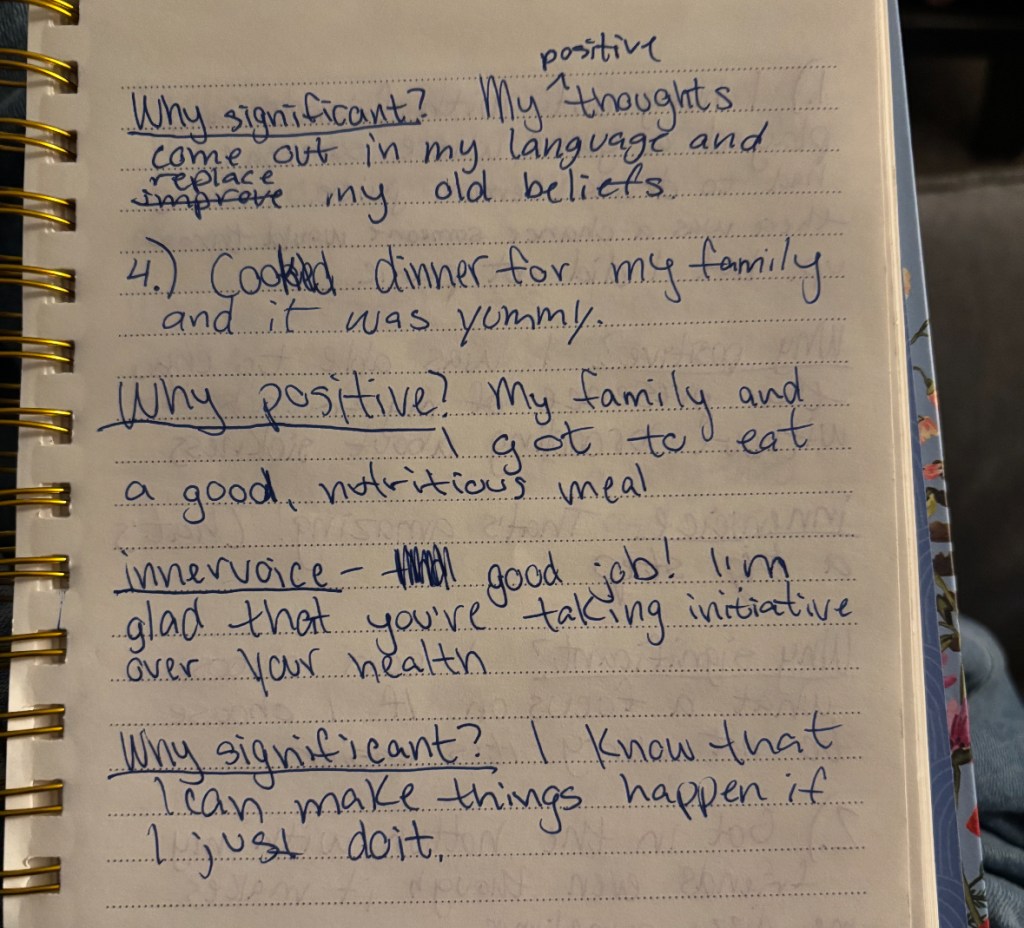 positive
Why significant? My ^ thoughts
come out in my language and
replace
improve my old beliefs.
4.) Cooked dinner for my family
and it was yummy.
Why positive? My family and
I got to eat
a good, nutritious meal
innervoice - good job! I'm
glad that you're taking initiative
over your health
Why significant? I know that
I can make things happen if
I just do it.